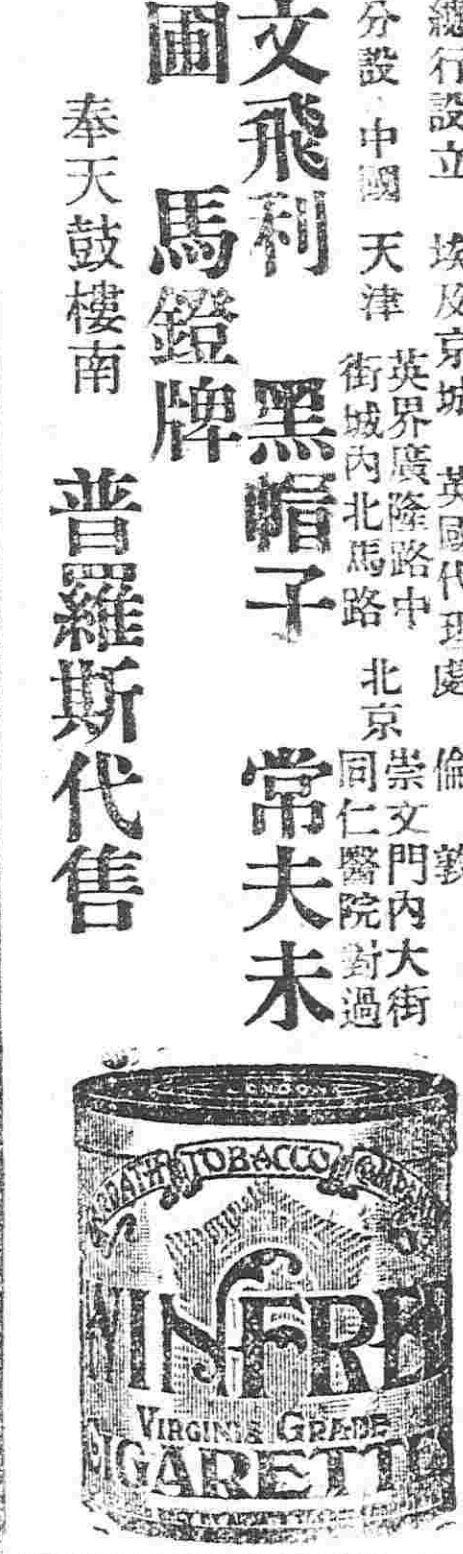 總行設立 埃及京城 英國代理處 倫敦
分設 中國 天津 英界廣隆路中街城內北馬路 北京 崇文門內大街同仁醫院對過
文飛利 黑帽子 常夫未
圃 馬鐙牌
奉天鼓樓南 普羅斯代售
LONDON
TOBACCO
WINFRED
VIRGINIA GRADE
CIGARETTES